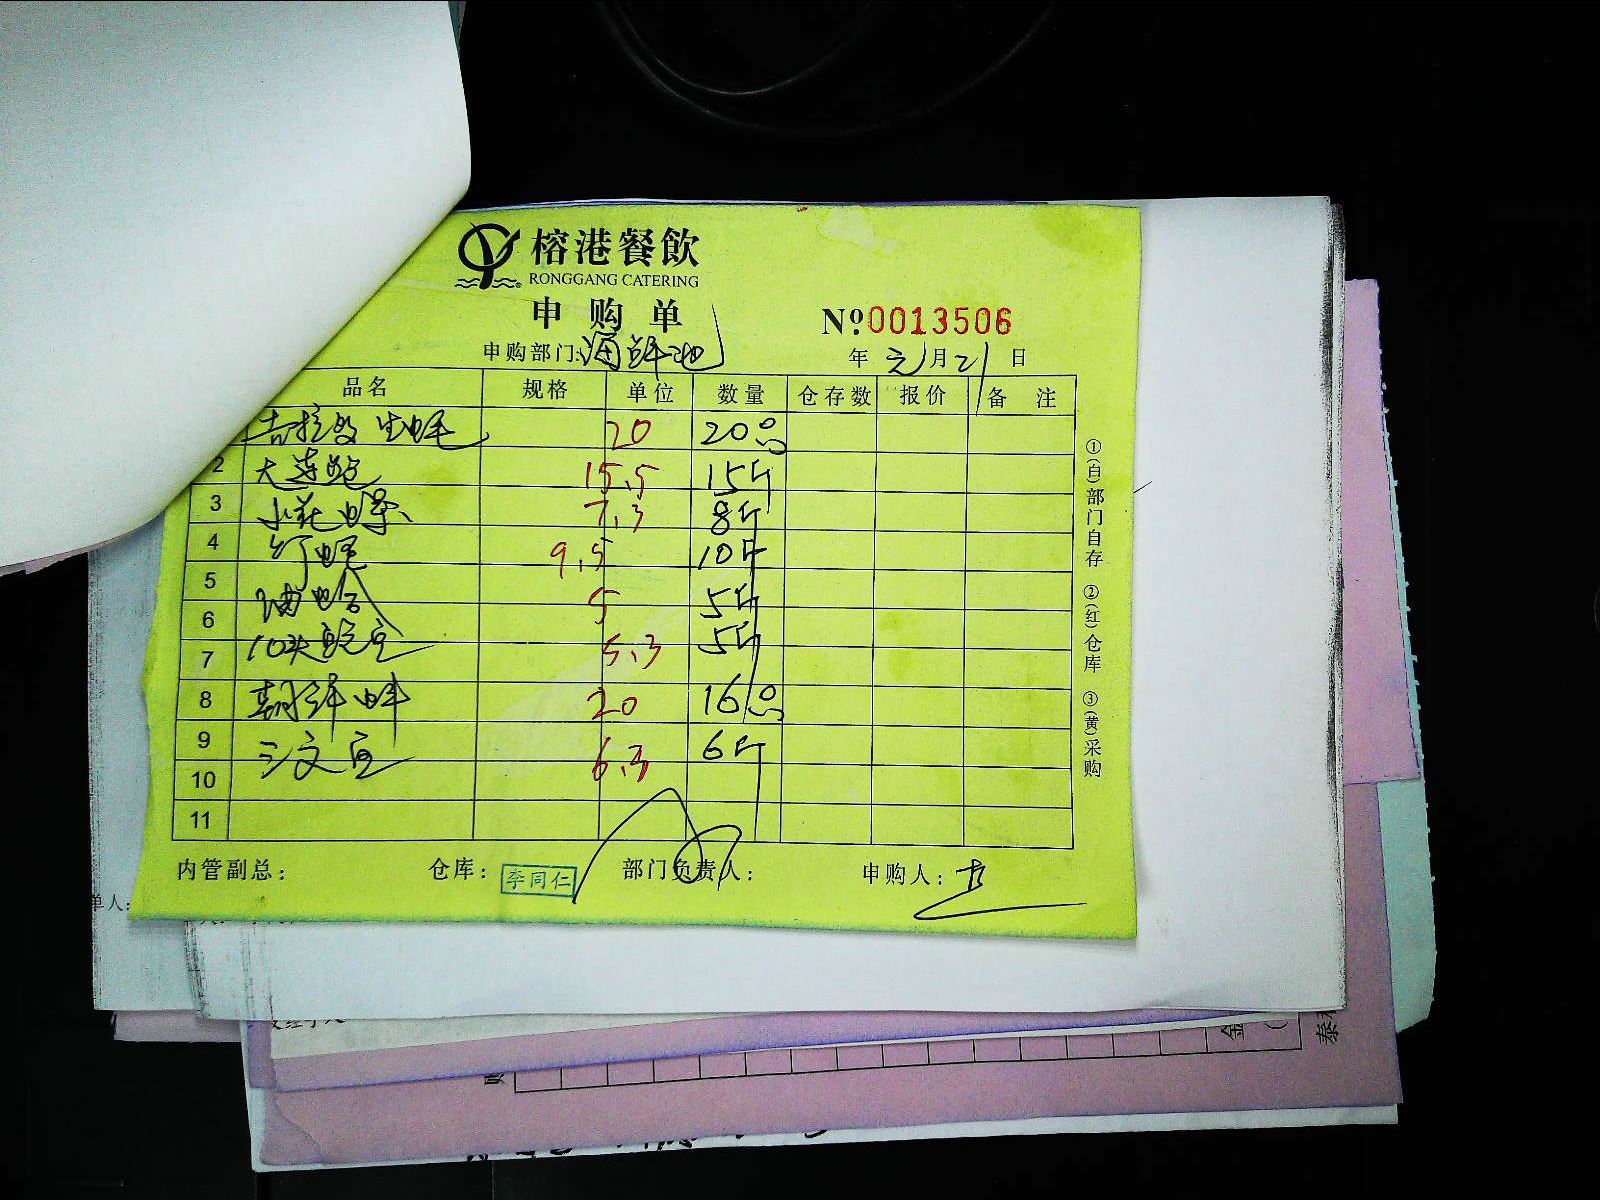 榕港餐飲
RONGGANG CATERING
申购单
№ 0013506
申购部门: 海鲜池
年 元月21日
品名 规格 单位 数量 仓存数 报价 备注
吉拉多生蚝 20 20只
2 大连鲍 15.5 15斤
3 小花螺 7.3 8斤
4 9.5 10斤
5 油蛤 5 5斤
6 10头鲍 5.3 5斤
7
8 朝鲜蚌 20 16只
9 三文 6.3 6斤
10
11
内管副总: 仓库: 李同仁 部门负责人: 申购人:
①(白)部门自存 ②(红)仓库 ③(黄)采购
单人:
金
泰